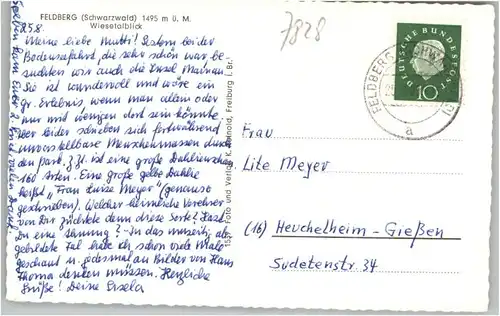 FELDBERG (Schwarzwald) 1495 m ü. M.
Wiesetalblick
7828
25.8.
Meine liebe Mutti! Gestern bei der
Bodenseefahrt, die sehr schön war be-
suchten wir auch die Insel Mainau.
Sie ist wundervoll und wäre ein
gr. Erlebnis, wenn man allein oder
nur mit wenigen dort sein könnte.
Aber leider schieben sich fortwährend
unvorstellbare Menschenmassen durch
den Park. Z. Zt. ist eine große Dahlienschau
160 Arten. Eine große gelbe Dahlie
heißt "Frau Luise Meyer" (genauso
geschrieben). Welcher heimliche Verehrer
von Dir züchtete denn diese Sorte? Hast
Du eine Ahnung? - In das umseitig ab-
gebildete Tal habe ich schon viele Male
geschaut u. jedesmal an Bilder von Hans
Thoma denken müssen. Herzliche
Grüße! Deine Gisela
Foto und Verlag K. Reinold, Freiburg i. Br.
DEUTSCHE BUNDESPOST
10
FELDBERG (SCHWARZW)
a
Frau
Lite Meyer
(16) Heuchelheim-Gießen
Sudetenstr. 34